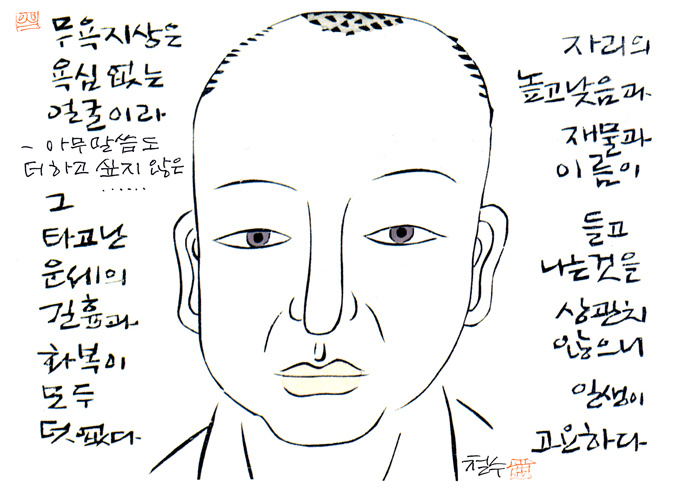 무욕지상은
욕심 없는
얼굴이라
- 아무 말씀도
더 하고 싶지 않은
......
그
타고난
운세의
길흉과
화복이
모두
덧없다.
자리의
높고 낮음과
재물과
이름이
들고
나는것을
상관치
않으니
일생이
고요하다
철수